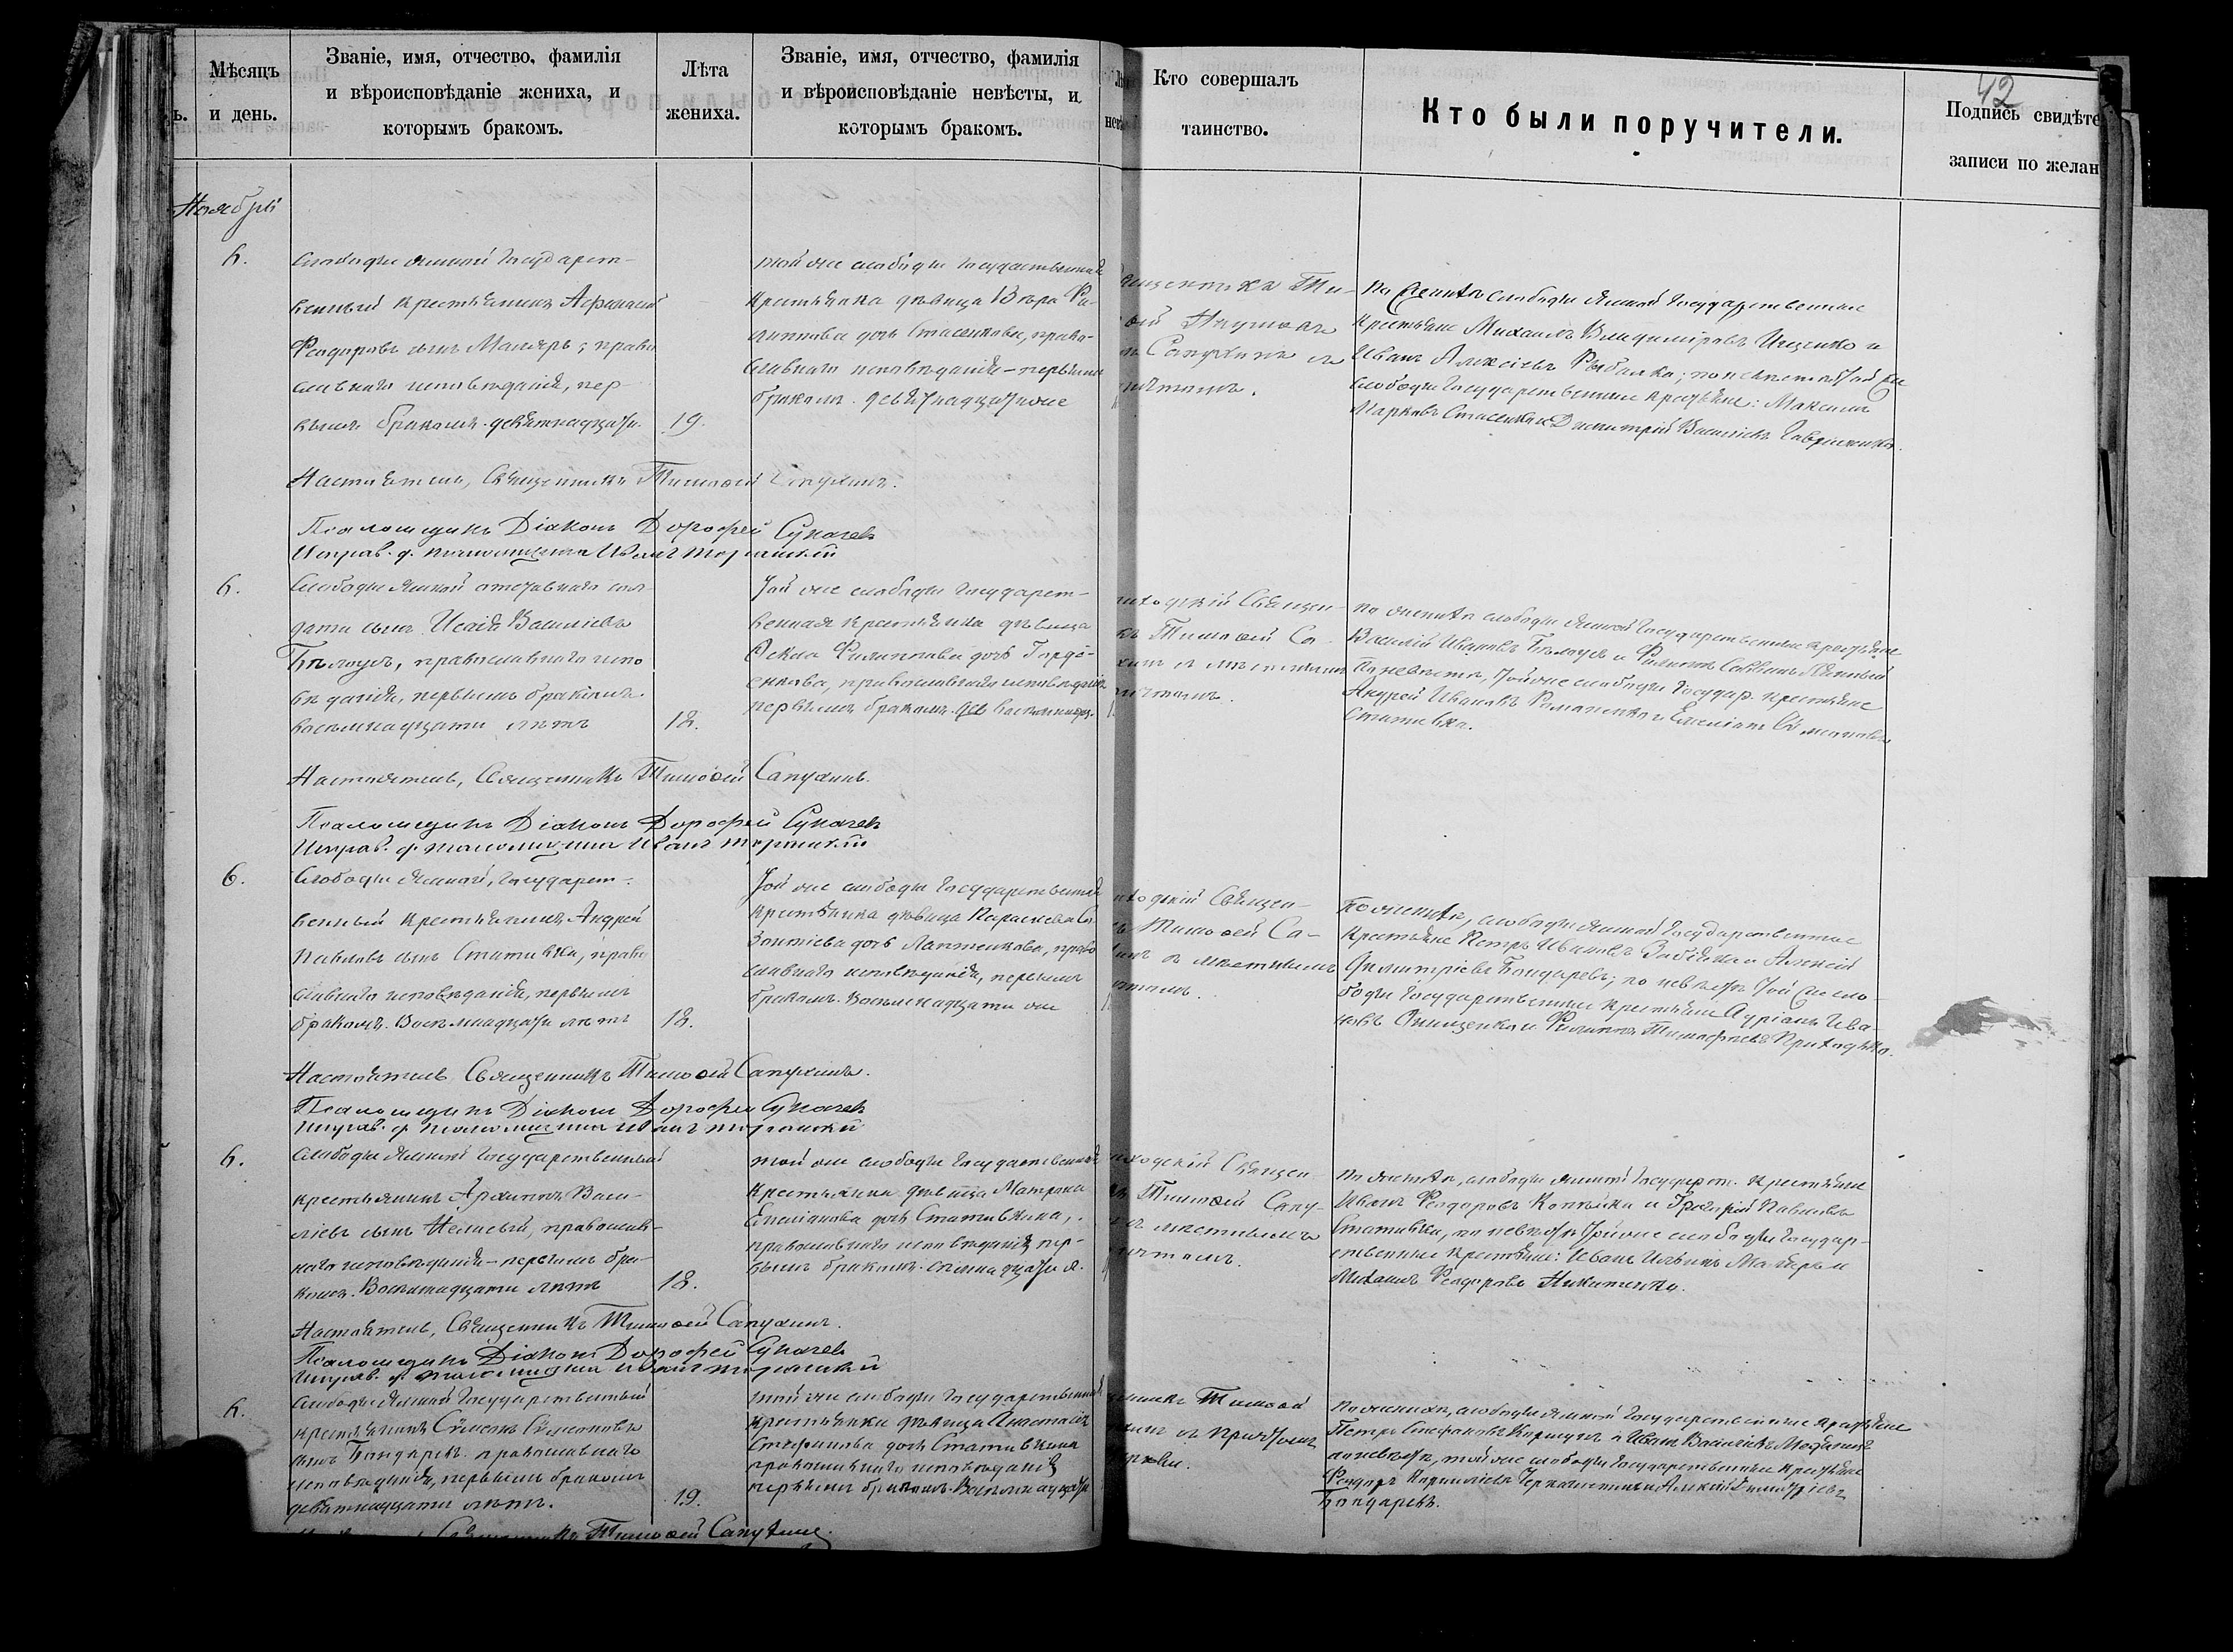 42
Мѣсяцъ
и день.
Званіе, имя, отчество, фамилія
и вѣроисповѣданіе жениха, и
которымъ бракомъ.
Лѣта
жениха.
Званіе, имя, отчество, фамилія
и вѣроисповѣданіе невѣсты, и
которымъ бракомъ.
Кто совершалъ
таинство.
Кто были поручители.
Подпись свидѣте
записи по желан
Ноябрь
6.
Слободы Ямной Государст-
венный крестьянинъ Афанасій
Феодоровъ сынъ Маляръ, право
славнаго исповѣданія, пер-
вымъ бракомъ. девятнадцати
19.
той же слободы Государственная
крестьянка дѣвица Вѣра Фи-
липпова дочь Стасенкова, право-
славнаго исповѣданія - первымъ
бракомъ. девятнадцати же
Священникъ Ти-
Сапухинъ
По женихѣ слободы Ямной Государственные
крестьяне Михаилъ Владиміровъ Ищенко и
Иванъ Алексѣевъ Рыбалка; по невѣстѣ той же
слободы Государственные крестьяне: Максимъ
Марковъ Стасенко и Димитрій Василіевъ Гавриленко.
Настоятель, Священникъ Тимофей Сапухинъ.
Псаломщикъ Діаконъ Дорофей Сукачев
Исправ. д. псаломщика Иванъ
6.
Слободы Ямной отставнаго сол-
дата сынъ Исаія Василіевъ
Бѣлоусъ, православнаго испо
вѣданія, первымъ бракомъ
восемнадцати лѣтъ
18.
Той же слободы Государст-
венная крестьянка дѣвица
Фекла Филиппова дочь Горде-
енкова, православнаго исповѣданія
первымъ бракомъ.
Священ-
Тимофей Са-
съ мѣстнымъ
причтомъ.
По женихѣ слободы Ямной Государственные крестьяне
Василій Ивановъ Бѣлоусъ и Филиппъ Саввинъ
По невѣстѣ, той же слободы Государ. крестьяне
Андрей Ивановъ Романенко и Емеліанъ
Стативка.
Настоятель, Священникъ Тимофей Сапухинъ.
Псаломщикъ Діаконъ Дорофей Сукачев
Исправ. д. псаломщика Иванъ
6.
Слободы Ямной, Государст-
венный крестьянинъ Андрей
Павловъ сынъ Стативка, право
славнаго исповѣданія, первымъ
бракомъ. Восемнадцати лѣтъ
18.
Той же слободы Государственная
крестьянка дѣвица Параскева
дочь Лаптенкова, право
славнаго исповѣданія, первымъ
бракомъ. Восемнадцати же
Священ-
Тимофей Са-
съ мѣстнымъ
причтомъ.
По женихѣ, слободы Ямной Государственные
крестьяне Петръ Ивановъ и Алексій
Димитріевъ Бондаревъ; по невѣстѣ той же сло-
боды Государственные крестьяне Адріанъ Ива-
новъ Онищенко и Филиппъ Тимофѣевъ Приходько.
Настоятель Священникъ Тимофей Сапухинъ.
Псаломщикъ Діаконъ Дорофей Сукачев
Исправ. д. псаломщика Иванъ
6.
Слободы Ямной Государственный
крестьянинъ Архиппъ Васи-
ліевъ сынъ, православ-
наго исповѣданія - первымъ бра-
комъ. Восемнадцати лѣтъ
18.
той же слободы Государственная
крестьянка дѣвица Матрона
Емеліанова дочь Стативкина,
православнаго исповѣданія пер-
вымъ бракомъ.
Священ-
Тимофей Сапу-
съ мѣстнымъ
причтомъ.
По женихѣ, слободы Ямной Государст. крестьяне
Иванъ Феодоровъ Копѣйка и Григорій Павловъ
Стативка, по невѣстѣ той же слободы Государ-
ственные крестьяне: Иванъ Ильинъ Маляръ и
Михаилъ Феодоровъ Никитенко.
Настоятель, Священникъ Тимофей Сапухинъ.
Псаломщикъ Діаконъ Дорофей Сукачев
Исправ. д. псаломщика Иванъ
6.
Слободы Ямной Государственный
крестьянинъ Сѵмеонъ Сѵмеоновъ
сынъ Бондаревъ. православнаго
исповѣданія, первымъ бракомъ
девятнадцати лѣтъ.
19.
той же слободы Государственная
крестьянка дѣвица Анастасія
Стефанова дочь Стативкина
православнаго исповѣданія
первымъ бракомъ. Восемнадцати
Тимофей
съ причтомъ
По женихѣ, слободы Ямной Государственные крестьяне
Петръ Стефановъ и Иванъ Василіевъ
по невѣстѣ, той же слободы Государственные крестьяне
Феодоръ и Алексій Димитріевъ
Бондаревъ.
Священникъ Тимофей Сапухинъ.